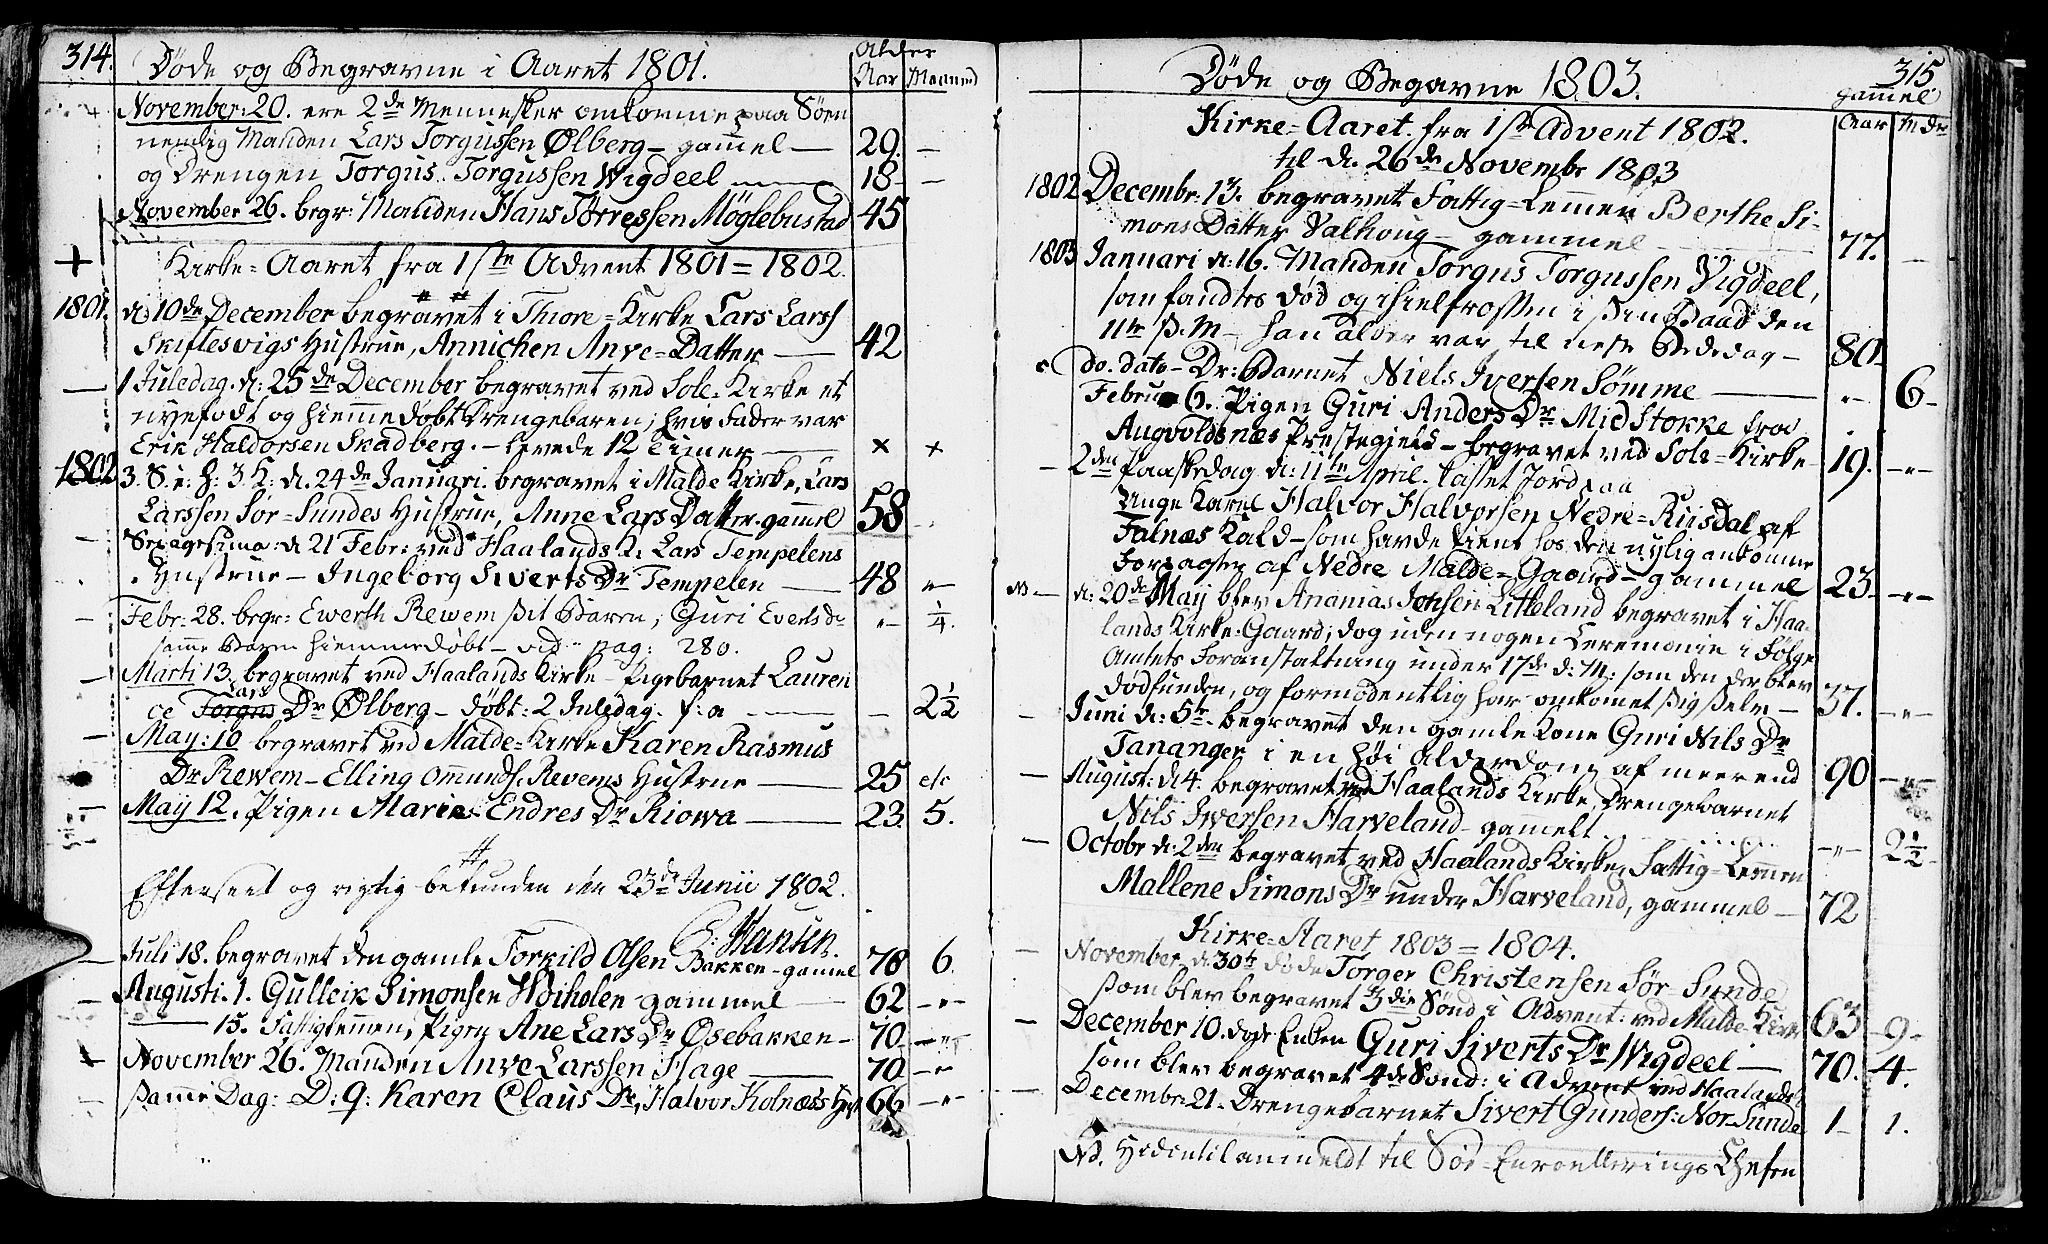 314.
Døde og Begravne i Aaret 1801.
Alder
Aar Maaned
November: 20. ere 2de Mennesker omkomne paa Søen
nemlig Manden Lars Torgussen Ølberg – gammel — 29. —
og Drengen Torgus Torgussen Wigdeel — 18 —
November 26. begr: Manden Hans Tørressen Møglebustad 45
Kirke-Aaret fra 1ste Advent 1801 = 1802.
1801. d. 10de December begravet i Thiore-Kirke Lars Larss
Skiftesvigs Hustrue, Annichen Anve-Datter — 42
1 Juledag. d: 25de December begravet ved Sole-Kirke et
nyefødt og hiemmedøbt Drengebaren; hvis Fader var
Erik Haldorsen Skadberg. – levede 12 Timer — × ×
1802 3. S. e: H: 3 K: d. 24de Januari. begravet i Malde Kirke, Lars
Larssen Sør-Sundes Hustrue, Anne Lars Datter. gammel 58
d 21 Febr: ved Haalands K. Lars Tempelens
Hustrue – Ingeborg Siverts Dr Tempelen — 48 „
Febr: 28. begr: Ewerth Rewem sit Baren, Guri Everts dr „ 1/4.
samme Baren hiemmedøbt – vid pag: 280.
Marti 13. begravet ved Haalands Kirke – Pigebarnet Lauren
Lars
ce Torgus Dr Ølberg – døbt: 2 Juledag. f: a — — 2 1/2
May: 10 begravet ved Malde-Kirke Karen Rasmus
Dr Rewem – Elling Ommunds. Revems Hustrue — 25 etc
May 12. Pigen Marie Endres Dr Riowa — 23. 5.
Efterseet og rigtig befunden den 23de Junii 1802.
Hansen.
Juli 18. begravet den gamle Torkild Olsen Bakken – gammel 78 6.
Augusti. 1. Gulleik Simonsen Høiholen gammel — 62 – „ –
— 15. Fattiglemmen, Pigen Ane Lars Dr Osebakken – 70 – „
November 26. Manden Anve Larssen Hage — 70 – „
samme Dag: D: 9: Karen Claus Dr, Halvor Kolnæs Hust 66 – „ –
315
Døde og Begavne 1803.
gammel
Aar Mdr
Kirke-Aaret fra 1ste Advent 1802.
til d. 26de Novembr 1803
1802 Decembr. 13. begravet Fattig-Lemmen Berthe Si-
mons Datter Valhoug – gammel — 77. —
1803 Januari d: 16. Manden Torgus Torgussen Vigdeel,
som fandtes død og ihielfrossen i sin Baad den
11te s. M – han alder var til neste Bededag – 80
do. dato – Dr: Barnet Niels Iversen Sømme — „ 6 –
Febru 6. Pigen Guri Anders Dr Midstokke fra
Augvoldsnæs Prestegield – begravet ved Sole-Kirke – 19. – „ –
2den Paaskedag d: 11te April. kastet Jord paa
Unge Karl Halvor Halvorsen Nedre-Riisdal af
Falnæs Kald – som havde tient hos den nylig ankomne
Forpagter af Nedre Malde-Gaard – gammel 23 – „ –
d: 20de May blev Ananias Jonsen Litleland begravet i Haa-
lands Kirke-Gaard; dog uden nogen Ceremonie i Følge
Amtets Foranstaltning under 17de d: M: som den der blev
dødfunden, og formodentlig har omkomet sig selv – 37. – „ –
Juni d: 5te begravet den gamle Kone Guri Nils Dr
Tananger i en høi Alderdom af meer end 90 – „
August: d 4. begravet ved Haalands Kirke, drengebarnet
Nils Iwersen Harveland – gammelt – „ – 2 1/2
Octobr d: 2den begravet ved Haalands Kirke, Fattig-Lemmen
Mallene Simons Dr under Harveland, gammel – 72
Kirke-Aaret 1803 = 1804.
November d: 30te døde Torger Christensen Sør-Sunde
som blev begravet 3die Sønd i Advent ved Malde-Kirke 63 – 9 –
December 10. døde Enken Guri Siverts Dr Wigdeel —
som blev begravet 4de Sønd: i Advent ved Haalands K. 70. – 4.
December 21. Drengebarnet Sivert Gunders: Nor-Sunde 1 – 1.
NB. Hidintil anmeldt til Søe-Enroullerings Chefen